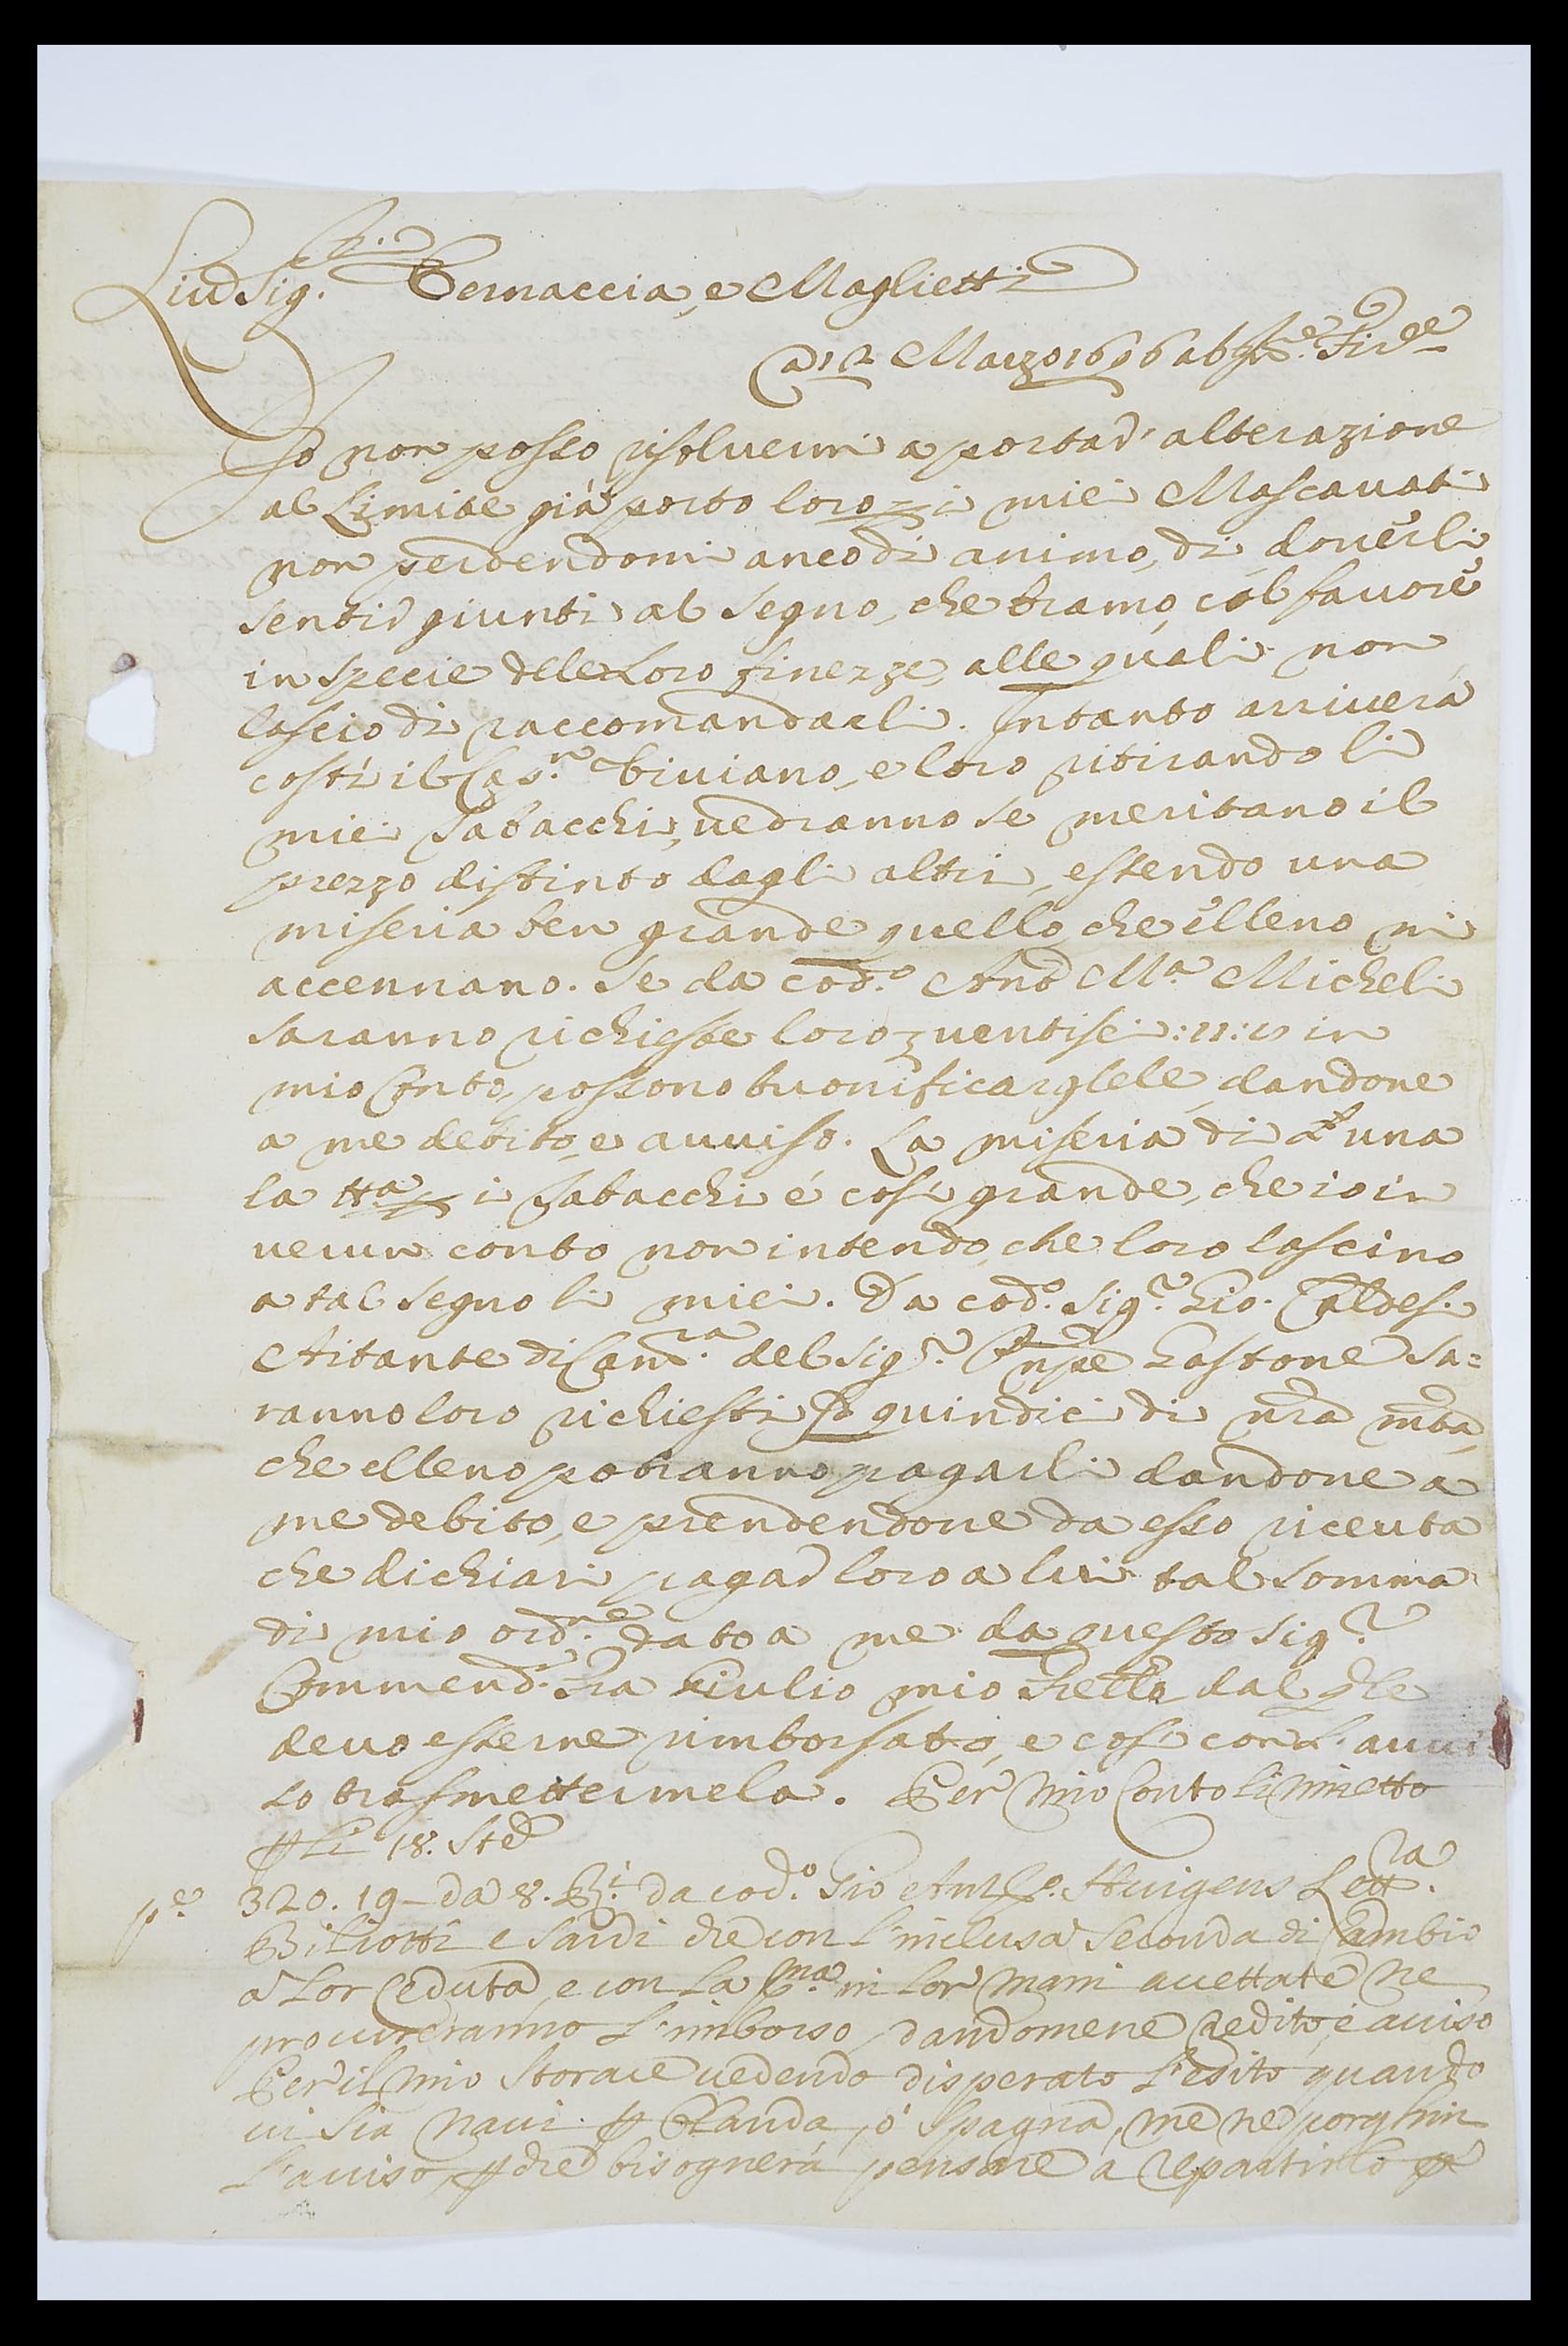 Liu.o Sig.ri Vernaccia, e Maglietti
a 12 Marzo 1696 ab Inc.e Fir.ze
Io non posso risoluermi a portar' alterazione
al Limite già porto loro p i miei Mascauati
non perdendomi anco di animo, di douerli
sentir giunti al segno, che bramo, col fauore
in specie delle Loro finezze, alle quali non
lascio di raccomandarli. Intanto arriuerà
costì il Cap.n Viuiano, e loro ritirando li
miei Tabacchi, uedranno se meritano il
prezzo distinto dagli altri, essendo una
miseria ben grande quello, che elleno mi
accennano. Se da cod.o And M.a Micheli
saranno richieste loro uentisei :11: in
mio Conto, possono buonificarglele, dandone
a me debito, e auuiso. La miseria di una
la tt.a p i Tabacchi é così grande, che io in
uerun conto non intendo, che loro lascino
a tal segno li miei. Da cod.o Sig.r Gio. Caldesi
Aitante di Cam.ra del Sig.r Pnpe Gastone sa=
ranno loro richiesti quindici di nra mta,
che elleno potranno pagarli dandone a
me debito, e prendendone da esso riceuta
che dichiari pagar loro a lui tal somma
di mio ord.ne dato a me da questo Sig.r
Commend.r Fra Giulio mio Frello dal qle
deuo esserne rimborsato, e così con L' auui
so trasmettermela. Per mio Conto li rimetto
p li 18. Ste
p.e 320. 19 – da 8. R.i da cod.o Gio Ant.o Huigens Lett.ra
Biliotti e Sardi che con l'inclusa Seconda di Cambio
a Lor Ceduta, e con La P.ma in Lor mani accettate ne
procureranno L'imborso, dandomene credito, e auiso
Per il mio Storace uedendo disperato L'esito quando
ui sia Naui p Olanda, ò Spagna, me ne porghin
L'auiso, p che bisognerà pensare a repartirlo p